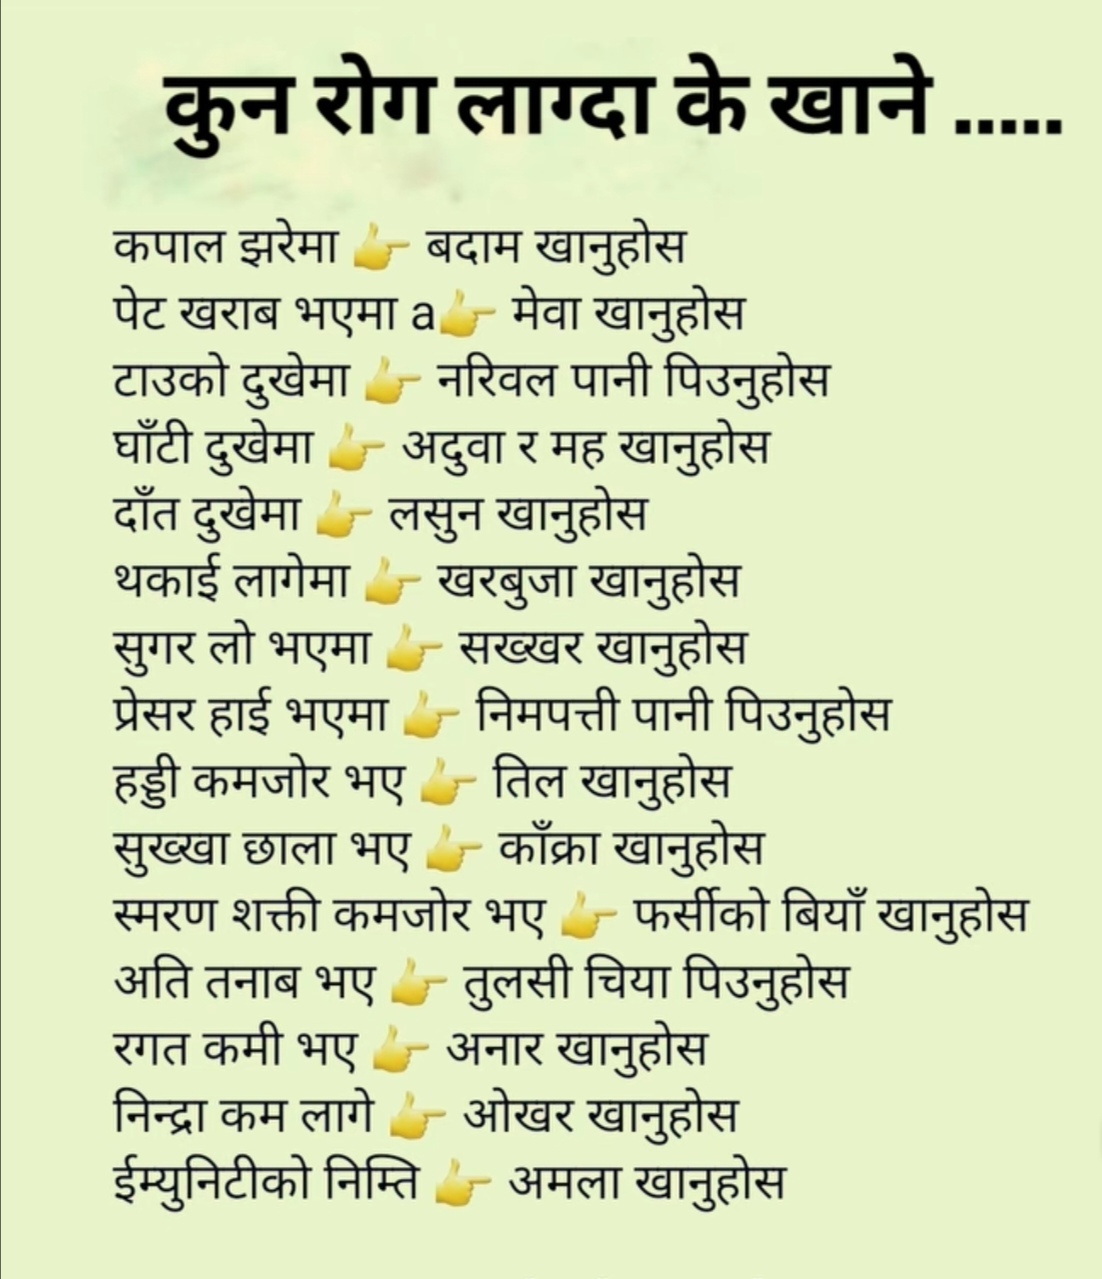 कुन रोग लाग्दा के खाने .....
कपाल झरेमा 👉 बदाम खानुहोस
पेट खराब भएमा a👉 मेवा खानुहोस
टाउको दुखेमा 👉 नरिवल पानी पिउनुहोस
घाँटी दुखेमा 👉 अदुवा र मह खानुहोस
दाँत दुखेमा 👉 लसुन खानुहोस
थकाई लागेमा 👉 खरबुजा खानुहोस
सुगर लो भएमा 👉 सख्खर खानुहोस
प्रेसर हाई भएमा 👉 निमपत्ती पानी पिउनुहोस
हड्डी कमजोर भए 👉 तिल खानुहोस
सुख्खा छाला भए 👉 काँक्रा खानुहोस
स्मरण शक्ती कमजोर भए 👉 फर्सीको बियाँ खानुहोस
अति तनाब भए 👉 तुलसी चिया पिउनुहोस
रगत कमी भए 👉 अनार खानुहोस
निन्द्रा कम लागे 👉 ओखर खानुहोस
ईम्युनिटीको निम्ति 👉 अमला खानुहोस